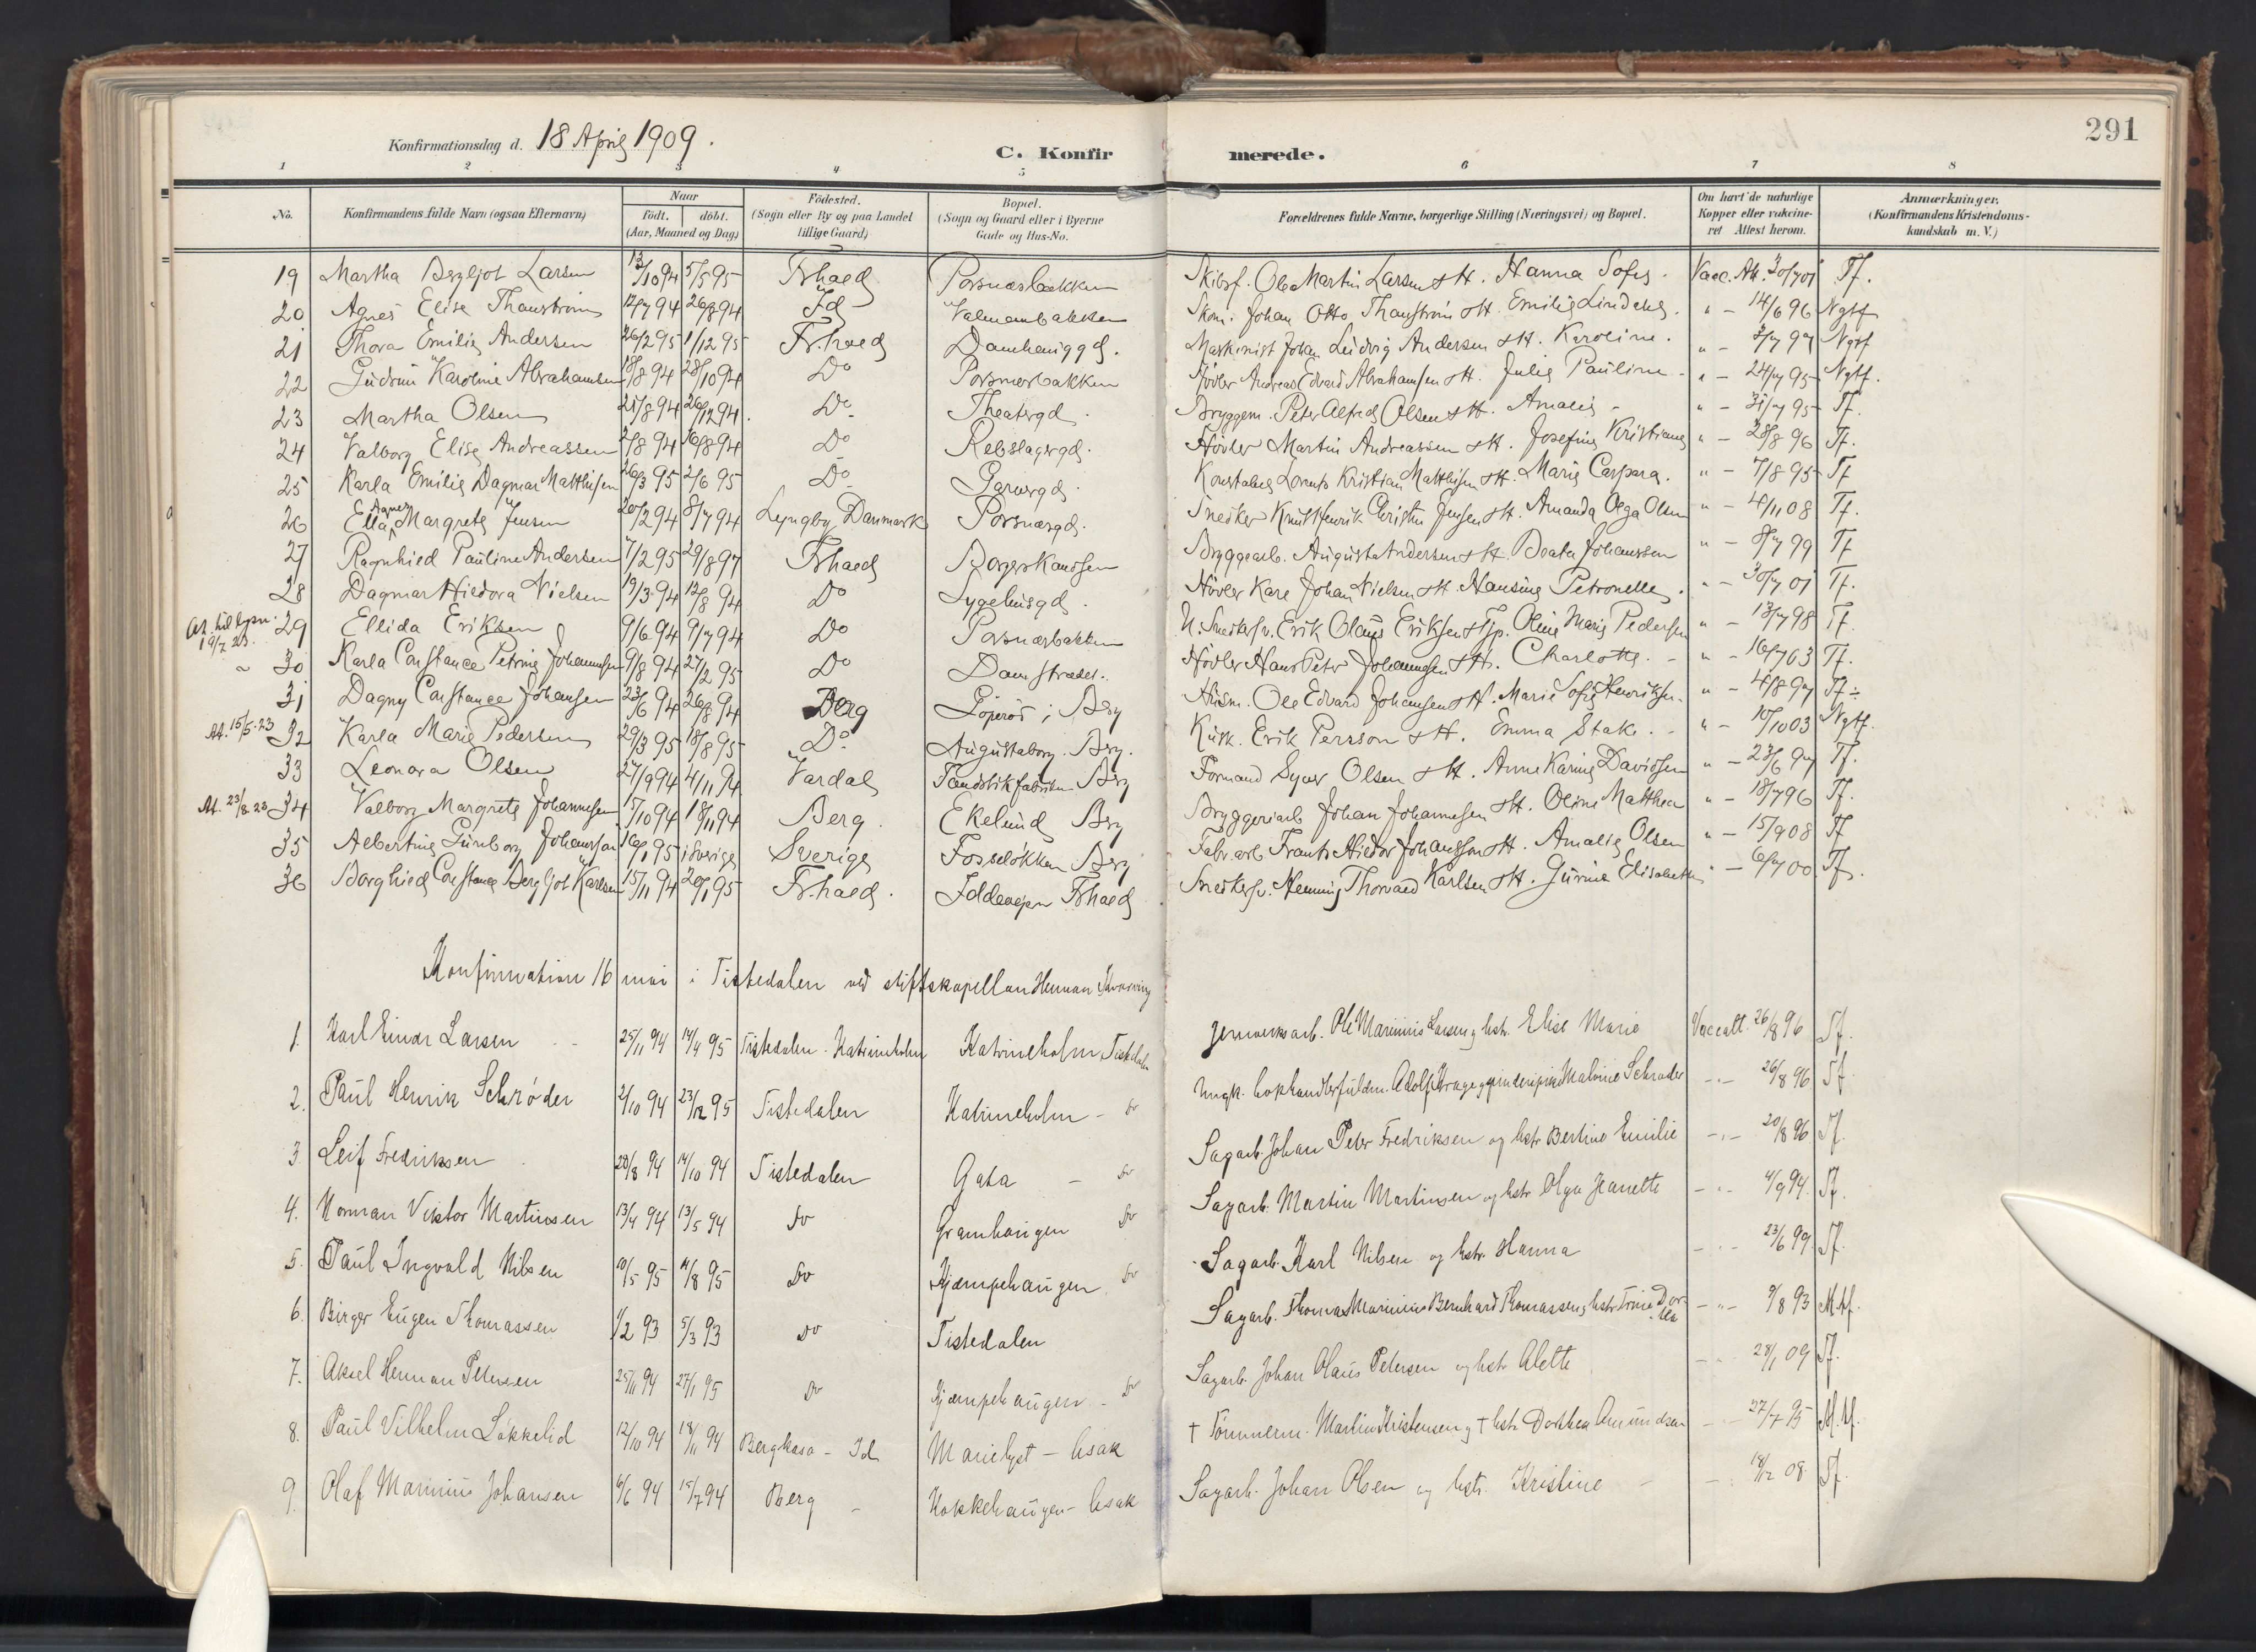 291
Konfirmationsdag d. 18 April 1909.
C. Konfirmerede.
1 2 3 4 5 6 7 8
No. Konfirmandens fulde Navn (ogsaa Efternavn) Naar født. døbt. (Aar, Maaned og Dag) Fødested. (Sogn eller By og paa Landet tillige Gaard) Bopæl. (Sogn og Gaard eller i Byerne Gade og Hus-No. Forældrenes fulde Navne, borgerlige Stilling (Næringsvei) og Bopæl. Om havt de naturlige Kopper eller vakcineret Attest herom. Anmærkninger. (Konfirmandens Kristendomskundskab m. V.)
19 Martha Bergljot Larsen 13/10 94 5/5 95 Frhald Porsnæsbakken Skibsf. Ole Martin Larsen & H. Hanna Sofie Vacc. Att. 30/7 01 Tf.
20 Agnes Elise Thanström 12/7 94 26/8 94 Id Valmenbakken Skom. Johan Otto Thanström & H. Emilie Lindahl. " - 14/6 96 Ngtf
21 Thora Emilie Andersen 26/2 95 1/12 95 Fr.hald Maskinist Johan Ludvig Andersen & H. Karoline. " - 3/7 97 Ngtf
22 Gudrun Karoline Abrahamsen 18/8 94 28/10 94 Do Porsnæsbakken Høvler Andreas Edvard Abrahamsen & H. Julie Pauline - " - 24/7 95 Ngtf.
23 Martha Olsen 21/8 94 26/12 94. Do Theatergd. Bryggem. Peter Alfred Olsen & H. Amalie - " - 31/7 95 Tf.
24 Valborg Elise Andreassen 2/8 94 16/8 94 Do Rebslagergd. Høvler Martin Andreassen & H. Josefine Kristiane " - 28/8 96 Tf.
25 Karla Emilie Dagmar Matthisen 26/3 95 2/6 95 Do Garvergd. Konstabel Lorents Kristian Matthisen & H. Marie Caspara. " - 7/8 95 Tf
26 Ella Agnes Margrete Jensen 20/2 94 8/7 94 Lyngby Danmark Porsnæsgd. Snedker Knut Henrik Christen Jensen & H. Amanda Olga Olsen " - 4/11 08 Tf.
27 Ragnhild Pauline Andersen 7/2 95 29/8 97 Frhald Bryggearb. August Andersen & H. Beate Johannsen " - 8/7 99 Tf
28 Dagmar Hildora Nielsen 19/3 94 12/8 94 Do Sygehusgd. Høvler Karl Johan Nielsen & H. Hansine Petronelle. " - 30/7 01 Tf.
29 Ellida Eriksen 9/6 94 9/7 94 Do Porsnæsbakken U. Snedkersv. Erik Olaus Eriksen & Tjp. Oline Marie Pedersen " - 13/7 98 Tf.
30 Karla Constance Petrine Johannesen 9/8 94 27/2 95 Do Damstrædet. Høvler Hans Peter Johannesen & H. Charlotte. - " - 16/7 03 Tf.
31 Dagny Constance Johansen 23/6 94 26/8 94 Berg i Berg Husm. Ole Edvard Johansen & H. Marie Sofie Henriksen. " - 4/8 97 Tf÷
At. 15/5.23 32 Karla Marie Pedersen 29/3 95 18/8 95 Do Augustaborg. Berg. Kusk. Erik Persson & H. Emma Stake. - " - 10/10 03 Ngtf.
33 Leonora Olsen 27/9 94 4/11 94 Vardal Tændstikfabriken Berg Formand Syver Olsen & H. Anne Karine Davidsen " - 23/6 97 Tf.
At. 23/8 23 34 Valborg Margrete Johannesen 15/10 94 18/11 94 Berg. Ekelund Berg Bryggeriarb Johan Johannesen & H. Oline Matthea " - 18/7 96 Tf.
35 Albertine Gunborg Johansson 16/1 95 i Sverige Sverige Fosseløkken Berg Fabr.arb Frants Hildor Johansson & H. Amalie Olsen " - 15/9 08 Tf
36 Borghild Constance Bergljot Karlsen 15/11 94 20/1 95 Fr.hald. Iddevejen Frhald Snedkersv. Henning Thorvald Karlsen & H. Gurine Elisabeth " - 6/7 00 Tf.
Konfirmation 16 mai i Tistedalen ved stiftskapellan Herman
1. Karl Einar Larsen 25/11 94 14/4 95 Tistedalen. Katrineholm Katrineholm Tistedalen Ole Marinius Larsen og hstr. Elise Marie Vaccatt. 26/8 96 Tf.
2. Paul Henrik Schrøder 2/10 94 23/12 95 Tistedalen Katrineholm - do Ungk. Adolf Krage og pike Malvine Schrøder -"- 26/8 96 Tf.
3 Leif Fredriksen 20/8 94 14/10 94 Tistedalen Gata - do Sagarb. Johan Peter Fredriksen og hstr Bertine Emilie -"- 20/8 96 Tf.
4. Herman Viktor Martinsen 13/4 94 13/5 94 do Granhaugen do Sagarb. Martin Martinsen og hstr Olga Jeanette -"- 4/9 94. Tf.
5. Paul Ingvald Nilsen 10/5 95 11/8 95 do Kjæmpehaugen do Sagarb. Karl Nilsen og hstr. Hanna -"- 23/6 99 Tf.
6. Birger Eugen Thomassen 1/2 93 5/3 93 do Tistedalen Sagarb. Thomas Marinius Bernhard Thomassen og hstr Trine Dorthea -"- 9/8 93 Mtf.
7. Aksel Herman Petersen 25/11 94 27/1 95 do Kjæmpehaugen - do Sagarb. Johan Olaus Petersen og hstr Alette -"- 28/1 09 Tf.
8. Paul Vilhelm Løkkelid 12/10 94 18/11 94 Bergkasa - Id Marielyst - Asak † Tømmerm. Martin Kristensen og † hstr Dorthea Amundsen -"- 27/7 95 M.tf.
9. Olaf Marinius Johansen 6/6 94 15/7 94 Berg - Kokkehaugen - Asak Sagarb. Johan Olsen og hstr. Kristine - -"- 18/12 08. Tf.